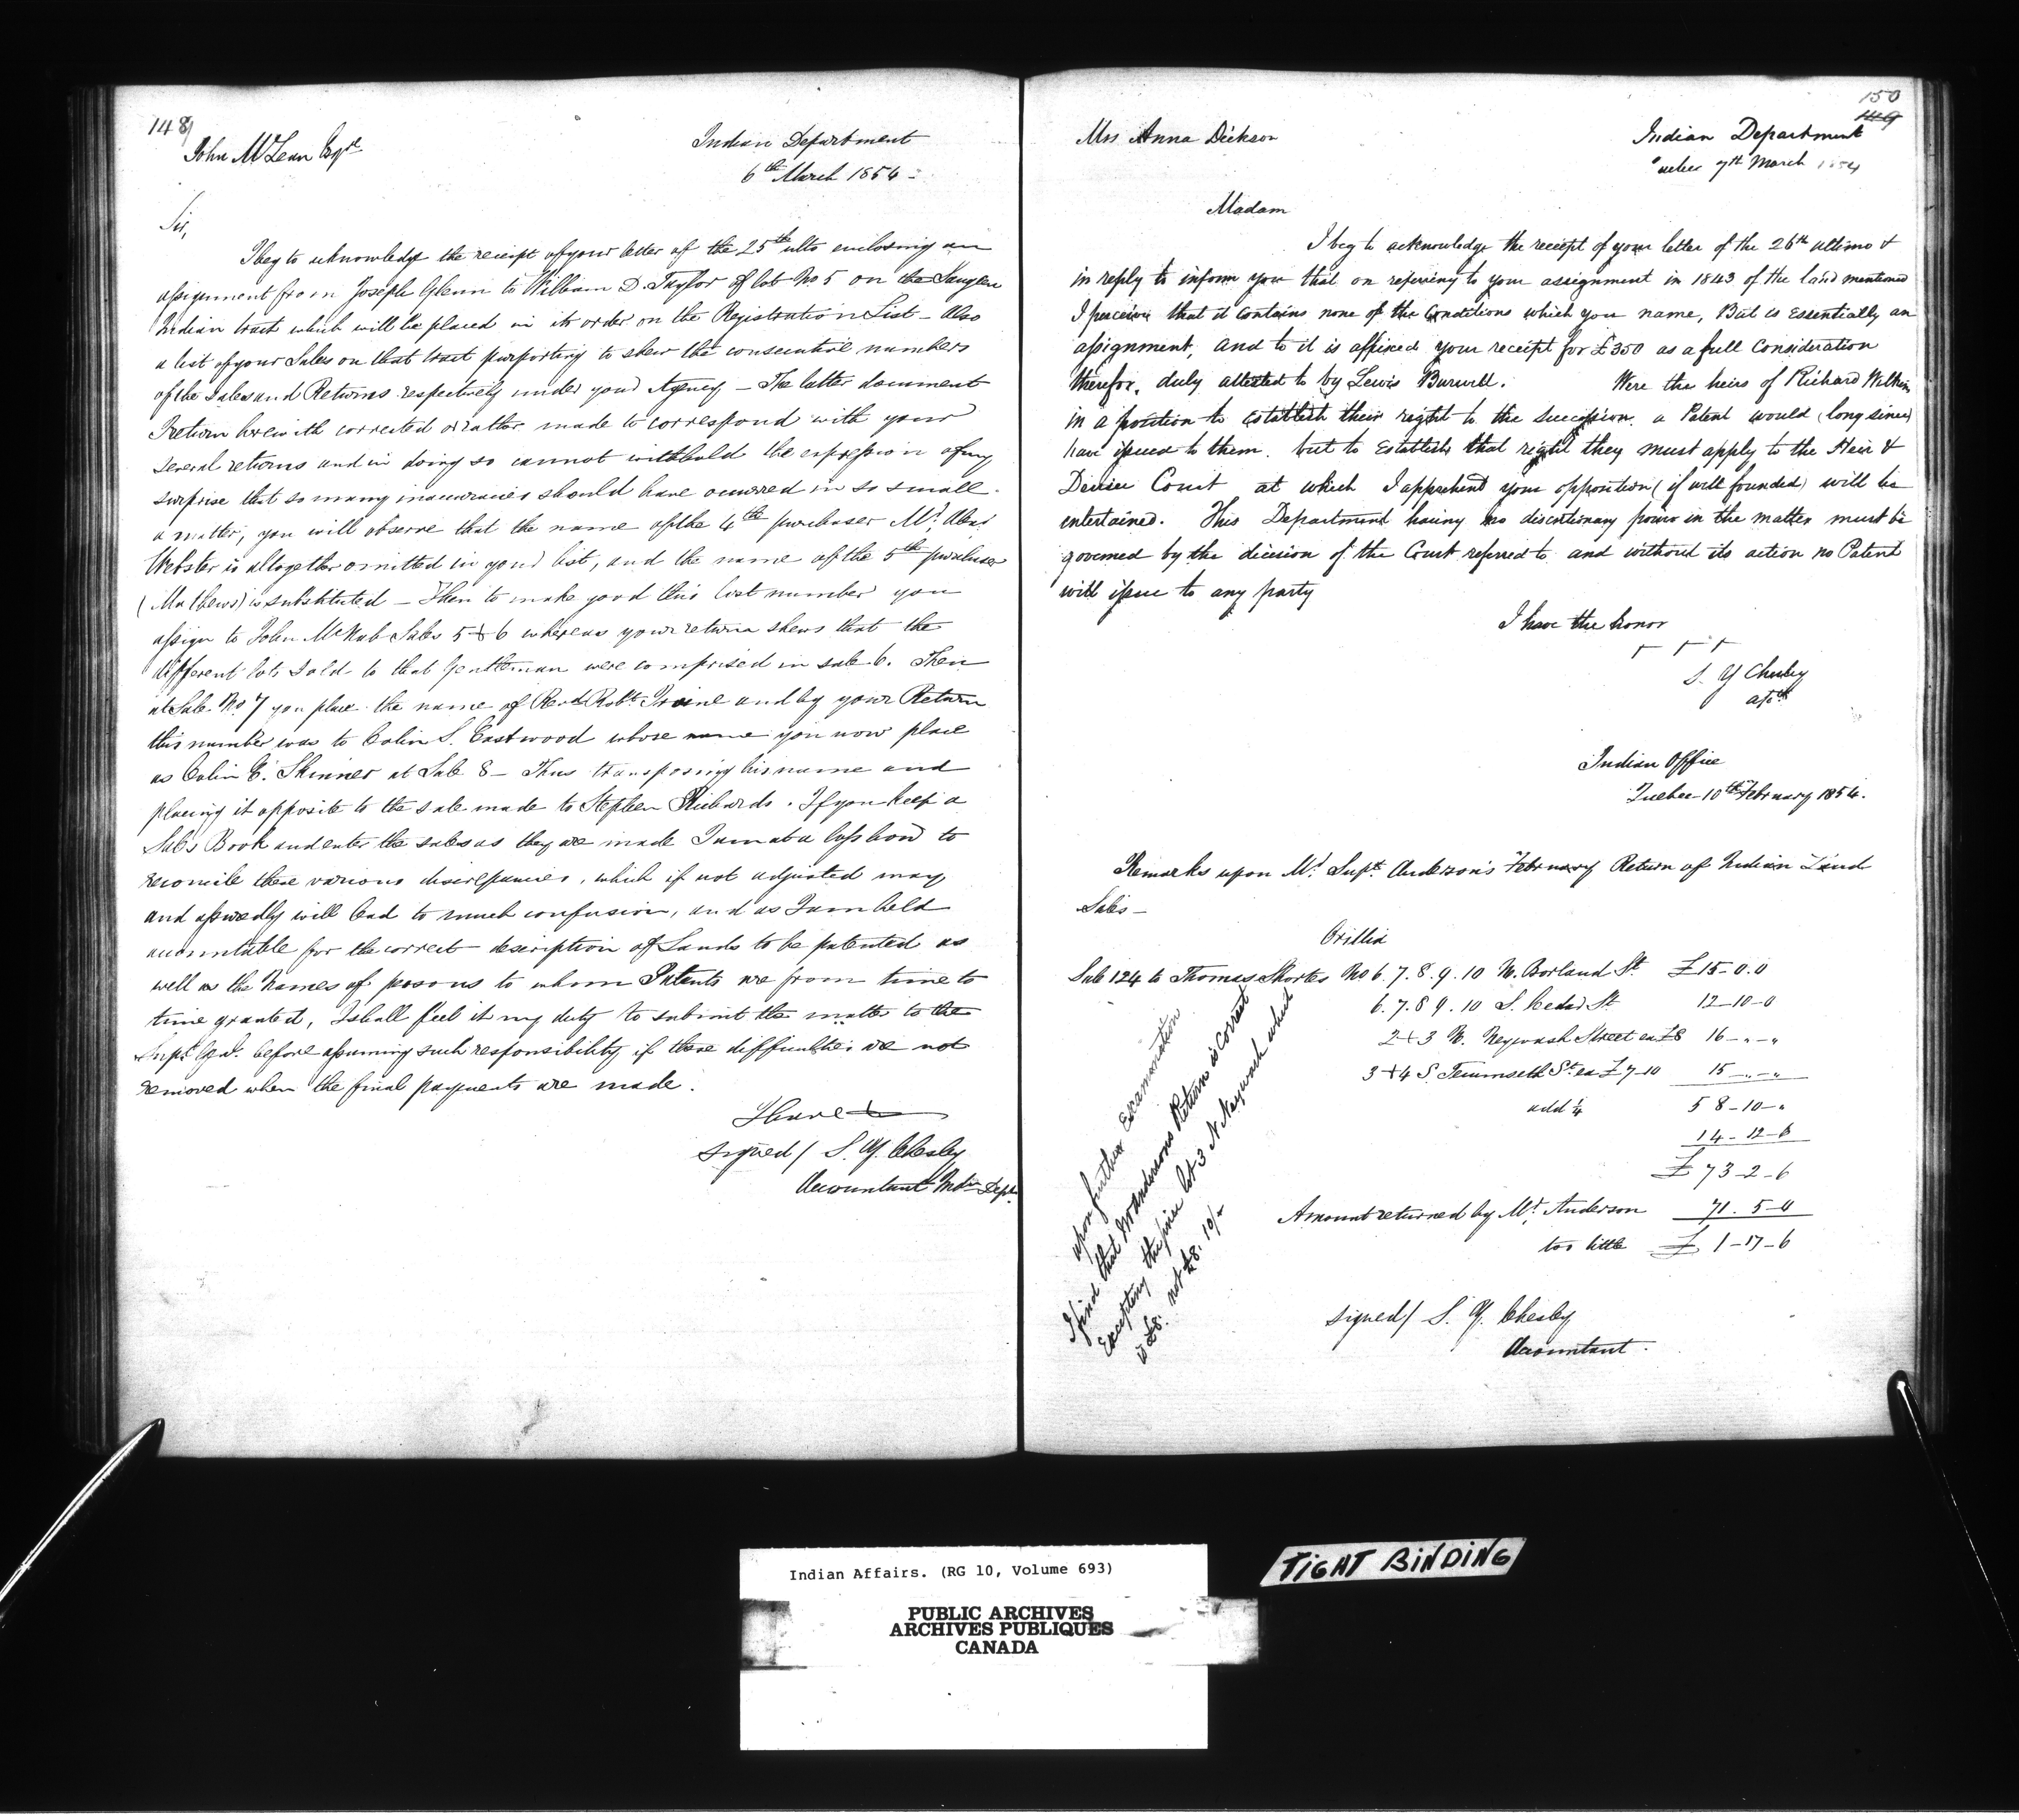 149
John McLean Esqre
Indian Department
6th March 1854 -
Sir,
I beg to acknowledge the receipt of your letter of the 25th ulto enclosing an
assignment from Joseph Glenn to William D. Taylor of lot No 5 on the Saugeen
Indian tract which will be placed in its order on the Registration List - Also
a list of your Sales on that tract purporting to shew the consecutive numbers
of the Sales and Returns respectively under your Agency - The latter document
I return herewith corrected or rather made to correspond with your
several returns and in doing so cannot withhold the expression of my
surprise that so many inaccuracies should have occurred in so small
a matter, you will observe that the name of the 4th purchaser Mr.
Webster is altogether omitted in your list, and the name of the 5th purchaser
(Mathews) is substituted - Then to make good this lost number you
assign to John McNab Sales 5 & 6 whereas your return shews that the
different lots sold to that Gentleman were comprised in sale 6. Then
at Sale No. 7 you place the name of Revd Robt. Irvine and by your Return
this number was to Colin S. Eastwood whose name you now place
as Colin C. Skinner at Sale 8 - Thus transposing his name and
placing it opposite to the sale made to Stephen Richards. If you keep a
Sales Book and enter the sales as they are made I am at a loss how to
reconcile these various discrepancies, which if not adjusted may
and assuredly will lead to much confusion, and as I am held
accountable for the correct description of Lands to be patented as
well as the Names of persons to whom Patents are from time to
time granted, I shall feel it my duty to submit the matter to the
Supt. Genl. before assuming such responsibility if these difficulties are not
removed when the final payments are made.
I have &
signed/ S. Y. Chesley
Accountant Indn Dept.
150
149
Mrs Anna Dickson
Indian Department
Quebec 7th March 1854
Madam
I beg to acknowledge the receipt of your letter of the 26th ultimo &
in reply to inform you that on referring to your assignment in 1843 of the land mentioned
I perceive that it contains none of the Conditions which you name, But is Essentially an
assignment, and to it is affixed your receipt for £350 as a full Consideration
therefor, duly attested to by Lewis Burwell. Were the heirs of Richard Wilkin
in a position to Establish their right to the succession, a Patent would (long since)
have issued to them, but to Establish that right they must apply to the Heir &
Devisee Court at which I apprehend your opposition (if well founded) will be
entertained. This Department having no discretionary power in the matter must be
governed by the decision of the Court referred to and without its action no Patent
will issue to any party
I have the honor
S. Y Chesley
Indian Office
Quebec 10th February 1854.
Remarks upon Mr. Supt. Anderson's February Return of Indian Land
Sales -
Orillia
Sale 124 to Thomas Shortes No 6. 7. 8. 9. 10 N. Borland St. £15-0.0
6. 7. 8 9. 10 S. Cedar St 12-10-0
2 & 3 N. Neywash Street ea £8 16-"-"
3 & 4 S. Tecumseth St. ea £7-10 15-"-"
add ¼ 58-10-"
14-12-6
£ 73-2-6
Amount returned by Mr. Anderson 71. 5-0
too little £ 1-17-6
signed/ S. Y. Chesley
Accountant.
upon further Examination
I find that Mr Andersons Return is correct
Excepting the price lot 3 N Naywash which
is £8. not £8. 10/-
Indian Affairs. (RG 10, Volume 693)
PUBLIC ARCHIVES
ARCHIVES PUBLIQUES
CANADA
TIGHT BINDING